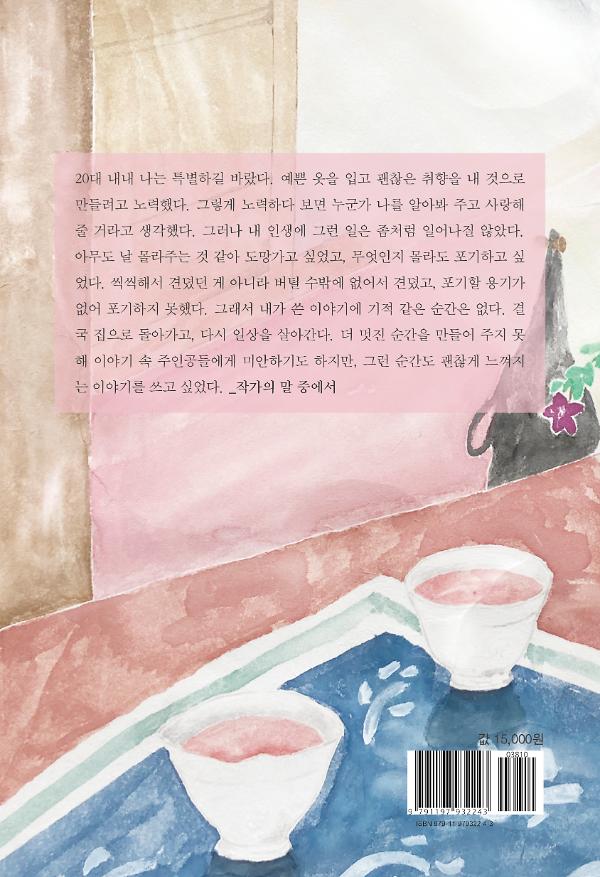 20대 내내 나는 특별하길 바랐다. 예쁜 옷을 입고 괜찮은 취향을 내 것으로
만들려고 노력했다. 그렇게 노력하다 보면 누군가 나를 알아봐 주고 사랑해
줄 거라고 생각했다. 그러나 내 인생에 그런 일은 좀처럼 일어나질 않았다.
아무도 날 몰라주는 것 같아 도망가고 싶었고, 무엇인지 몰라도 포기하고 싶
었다. 씩씩해서 견뎠던 게 아니라 버틸 수밖에 없어서 견뎠고, 포기할 용기가
없어 포기하지 못했다. 그래서 내가 쓴 이야기에 기적 같은 순간은 없다. 결
국 집으로 돌아가고, 다시 일상을 살아간다. 더 멋진 순간을 만들어 주지 못
해 이야기 속 주인공들에게 미안하기도 하지만, 그런 순간도 괜찮게 느껴지
는 이야기를 쓰고 싶었다. _작가의 말 중에서
값 15,000원
03810
9 791197 932243
ISBN 979-11-979322-4-3